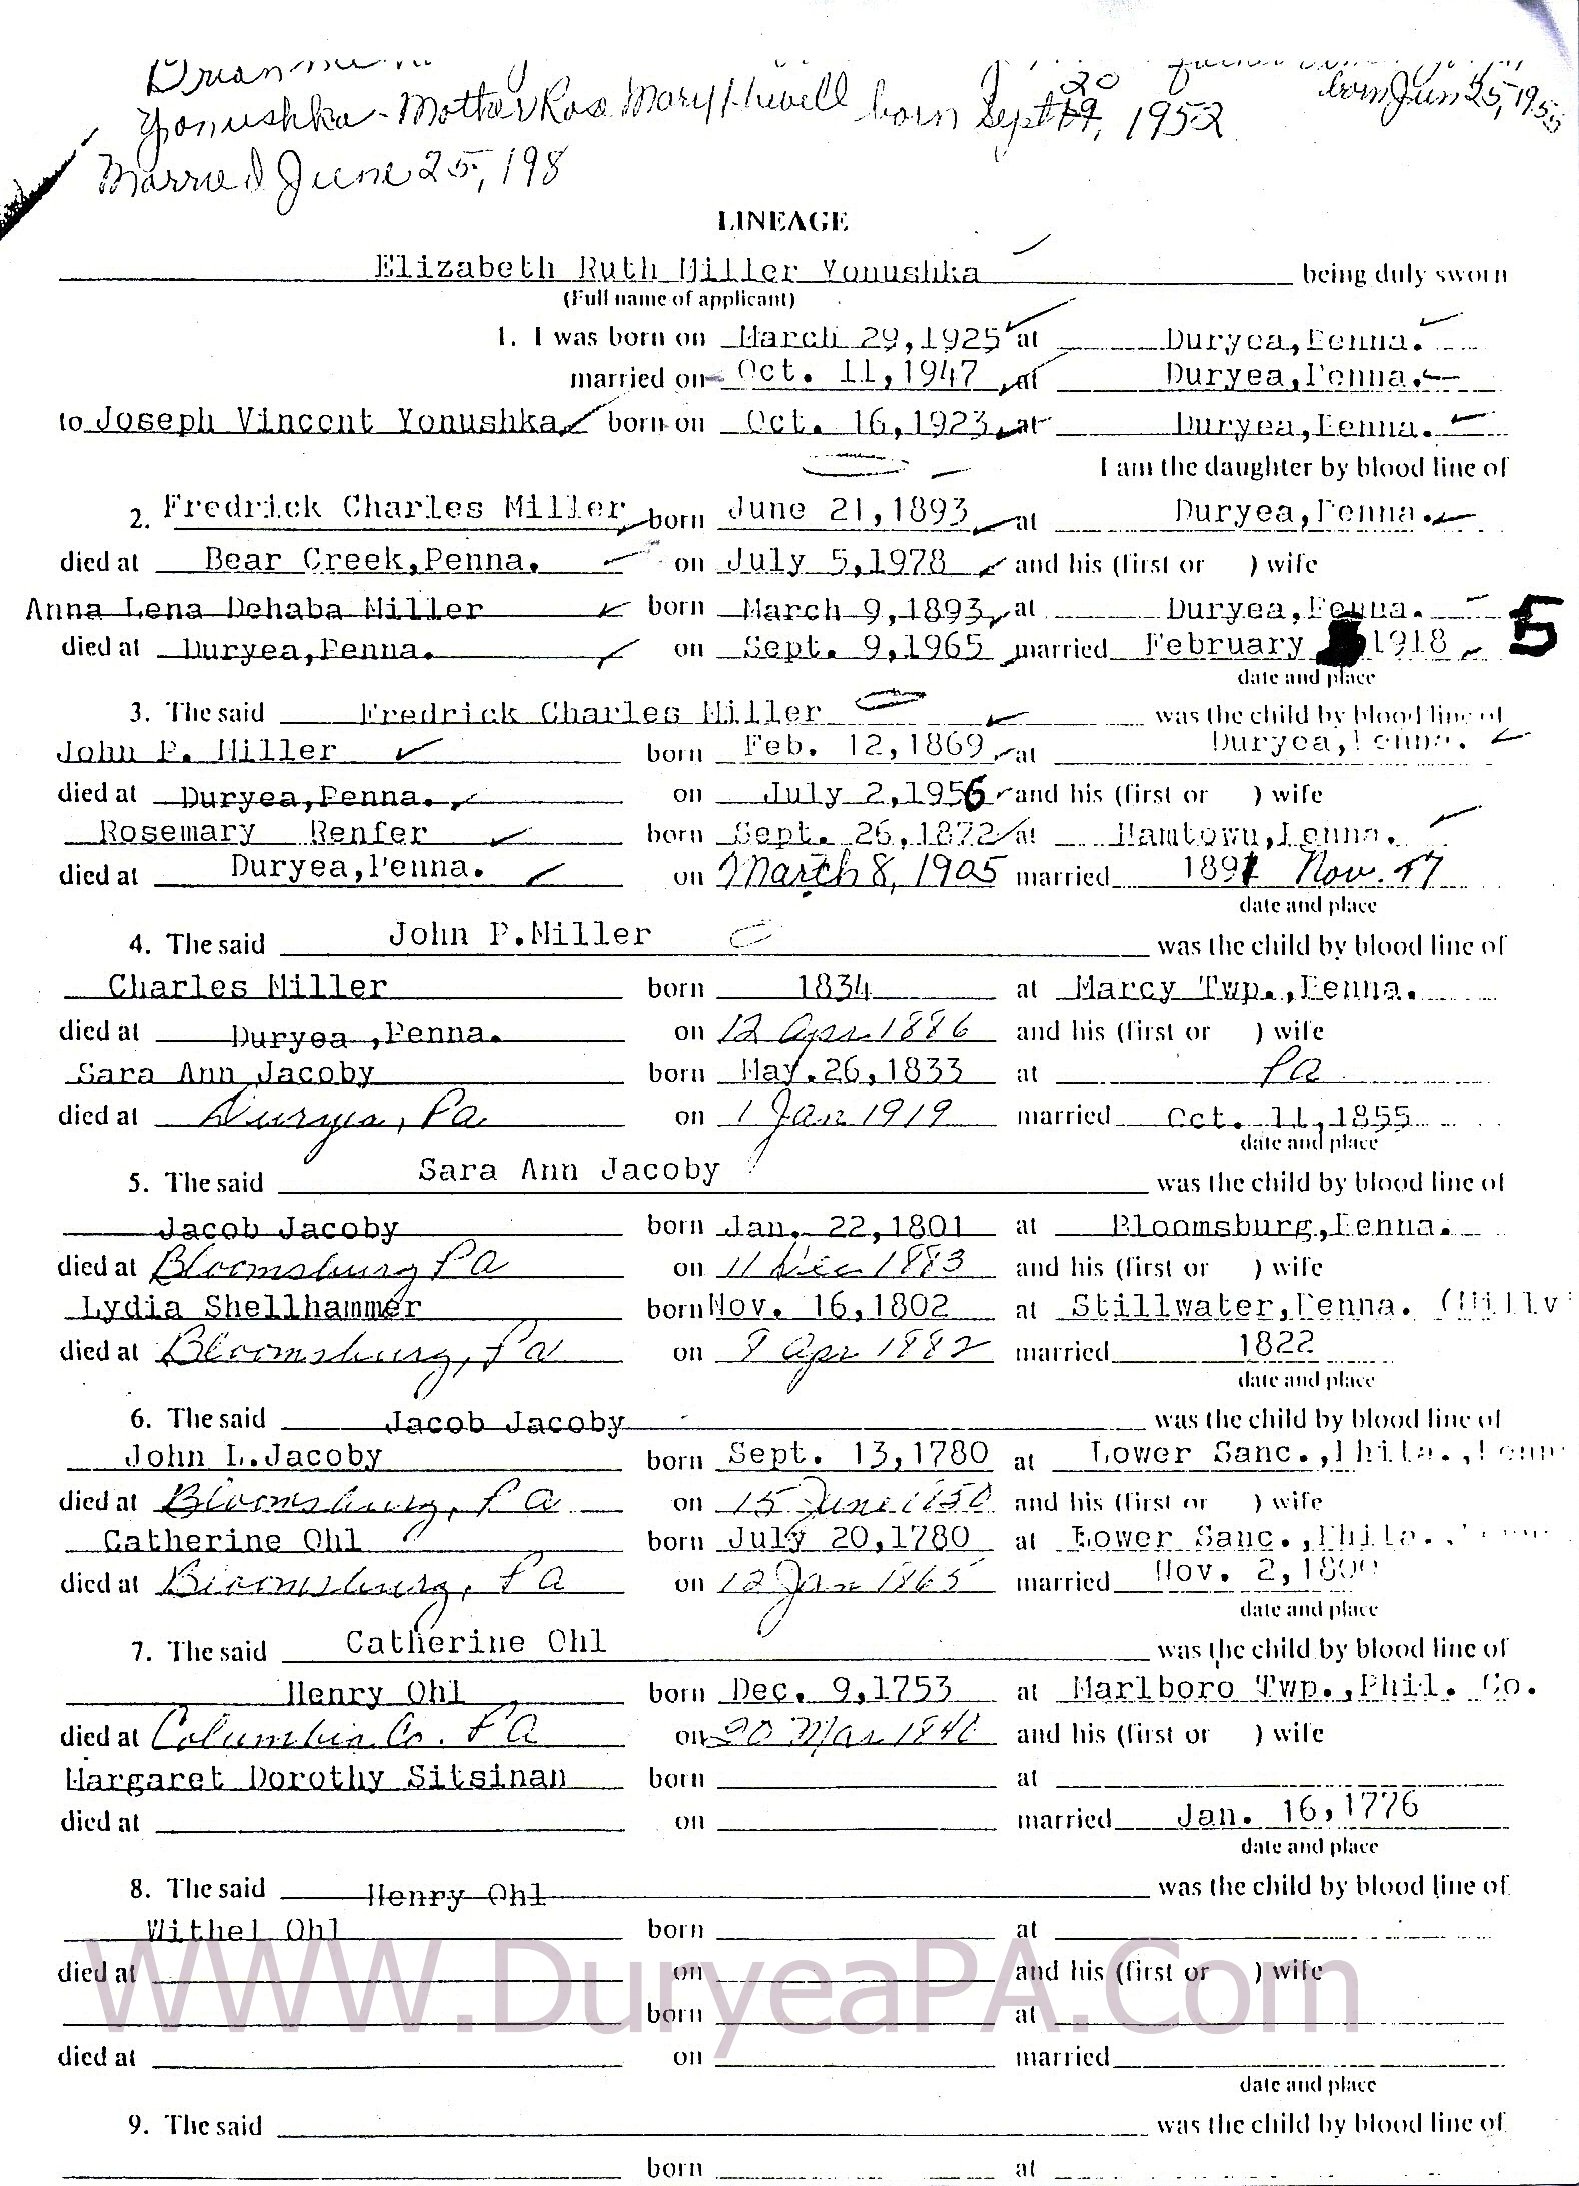 Yonushka - Mother Rose Mary born Sept 19, 20 1952 born Jun 25, 1955
Married June 25, 198
LINEAGE
Elizabeth Ruth Miller Yonushka being duly sworn
(Full name of applicant)
1. I was born on March 29,1925 at Duryea,Penna.
married on Oct. 11,1947 at Duryea,Penna.
to Joseph Vincent Yonushka born on Oct. 16,1923 at Duryea,Penna.
I am the daughter by blood line of
2. Fredrick Charles Miller born June 21,1893 at Duryea,Penna.
died at Bear Creek,Penna. on July 5,1978 and his (first or ) wife
Anna Lena Dehaba Miller born March 9,1893 at Duryea,Penna.
died at Duryea,Penna. on Sept. 9,1965 married February 1918 5
date and place
3. The said Fredrick Charles Miller was the child by blood line of
John P. Miller born Feb. 12,1869 at Duryea,Penna.
died at Duryea,Penna. on July 2,1956 and his (first or ) wife
Rosemary Renfer born Sept. 26,1872 at Hamtown,Penna.
died at Duryea,Penna. on March 8, 1905 married 1891 Nov. 17
date and place
4. The said John P.Miller was the child by blood line of
Charles Miller born 1834 at Marcy Twp.,Penna.
died at Duryea ,Penna. on 12 Apr 1886 and his (first or ) wife
Sara Ann Jacoby born May.26,1833 at Pa
died at Duryea, Pa on 1 Jan 1919 married Oct. 11,1855
date and place
5. The said Sara Ann Jacoby was the child by blood line of
Jacob Jacoby born Jan. 22,1801 at Bloomsburg,Penna.
died at Bloomsburg Pa on 11 Dec 1883 and his (first or ) wife
Lydia Shellhammer born Nov. 16,1802 at Stillwater,Penna. (Millv
died at Bloomsburg, Pa on 9 Apr 1882 married 1822
date and place
6. The said Jacob Jacoby was the child by blood line of
John L.Jacoby born Sept. 13,1780 at Lower Sanc.,Phila.,Penn
died at Bloomsburg, Pa on 15 June 1850 and his (first or ) wife
Catherine Ohl born July 20,1780 at Lower Sanc.,Phila.,
died at Bloomsburg, Pa on 12 Jan 1865 married Nov. 2,1800
date and place
7. The said Catherine Ohl was the child by blood line of
Henry Ohl born Dec. 9,1753 at Marlboro Twp.,Phil. Co.
died at Columbia Co. Pa on 20 Mar and his (first or ) wife
Margaret Dorothy Sitsinan born at
died at on married Jan. 16,1776
date and place
8. The said Henry Ohl was the child by blood line of
Withel Ohl born at
died at on and his (first or ) wife
born at
WWW.DuryeaPA.Com
died at on married
date and place
9. The said was the child by blood line of
born at